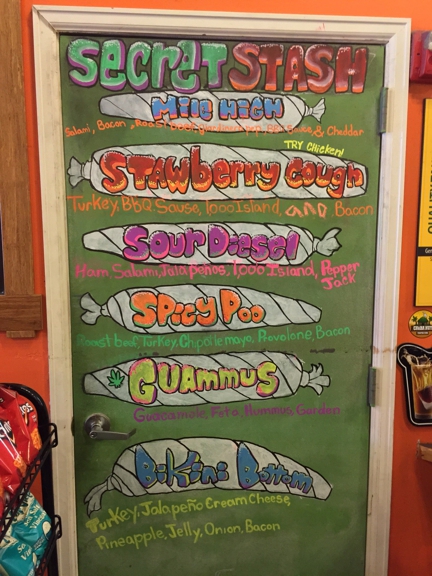 SECRET STASH
Mile High
Salami, Bacon, Roast Beef, BBQ Sauce, & Cheddar
TRY Chicken!
STAWberry Cough
Turkey, BBQ Sause, 1000 Island, AND Bacon
Sour Diesel
Ham, Salami, Jalapeños, 1,000 Island, Pepper
Jack
Spicy Poo
Roast beef, Turkey, Chipotle mayo, Provolone, Bacon
GUAMMUS
Guacamole, Feta, Hummus, Garden
Bikini Bottom
Turkey, Jalapeño Cream Cheese,
Pineapple, Jelly, Onion, Bacon